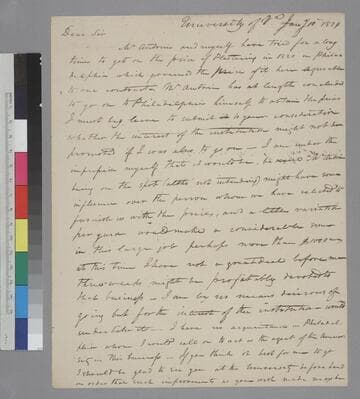 University of Va Jany 10th 1829
Dear Sir
Mr Antrim and myself have tried for a long
time to get on the price of Plastering in 1820 in Philad
delphia which governed the price of it here agreeable
to our contract Mr Antrim has at length concluded
to go on to Philadelphia himself to obtain the prices
I must beg leave to submit to your consideration
whether the interest of the institution might not be
promoted if I was also to go on — I am under the
impression myself that it would be, as Mr Antrim
being on the spot (altho not intending) might have some
influence over the person whom we have selected to
furnish us with the prices, and a little variation
per yard would make a considerable sum
in this large job perhaps more than
at this time I have not a great deal before me
three weeks might be profitably devoted to
that business — I am by no means desirous of
going but for the interest of the institution would
undertake it — I have no acquaintance in Philadel
phia whom I could call on to act as the agent of the Univer
sity in this business — if you think it best for me to go
I should be glad to see you at the University before hand
in order that such improvements as your wish made may be